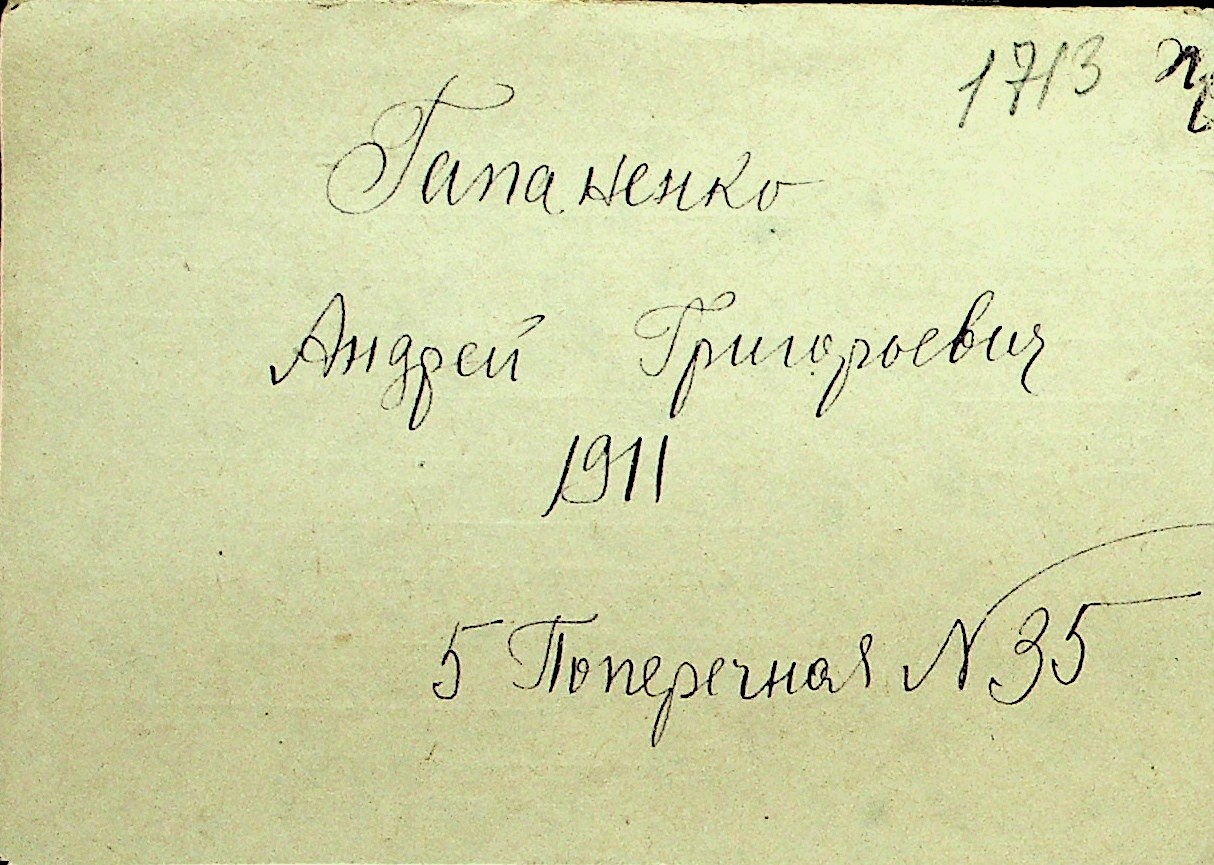 1713
Гапаненко
Андрей Григороевич
1911
5 Поперечная N 35